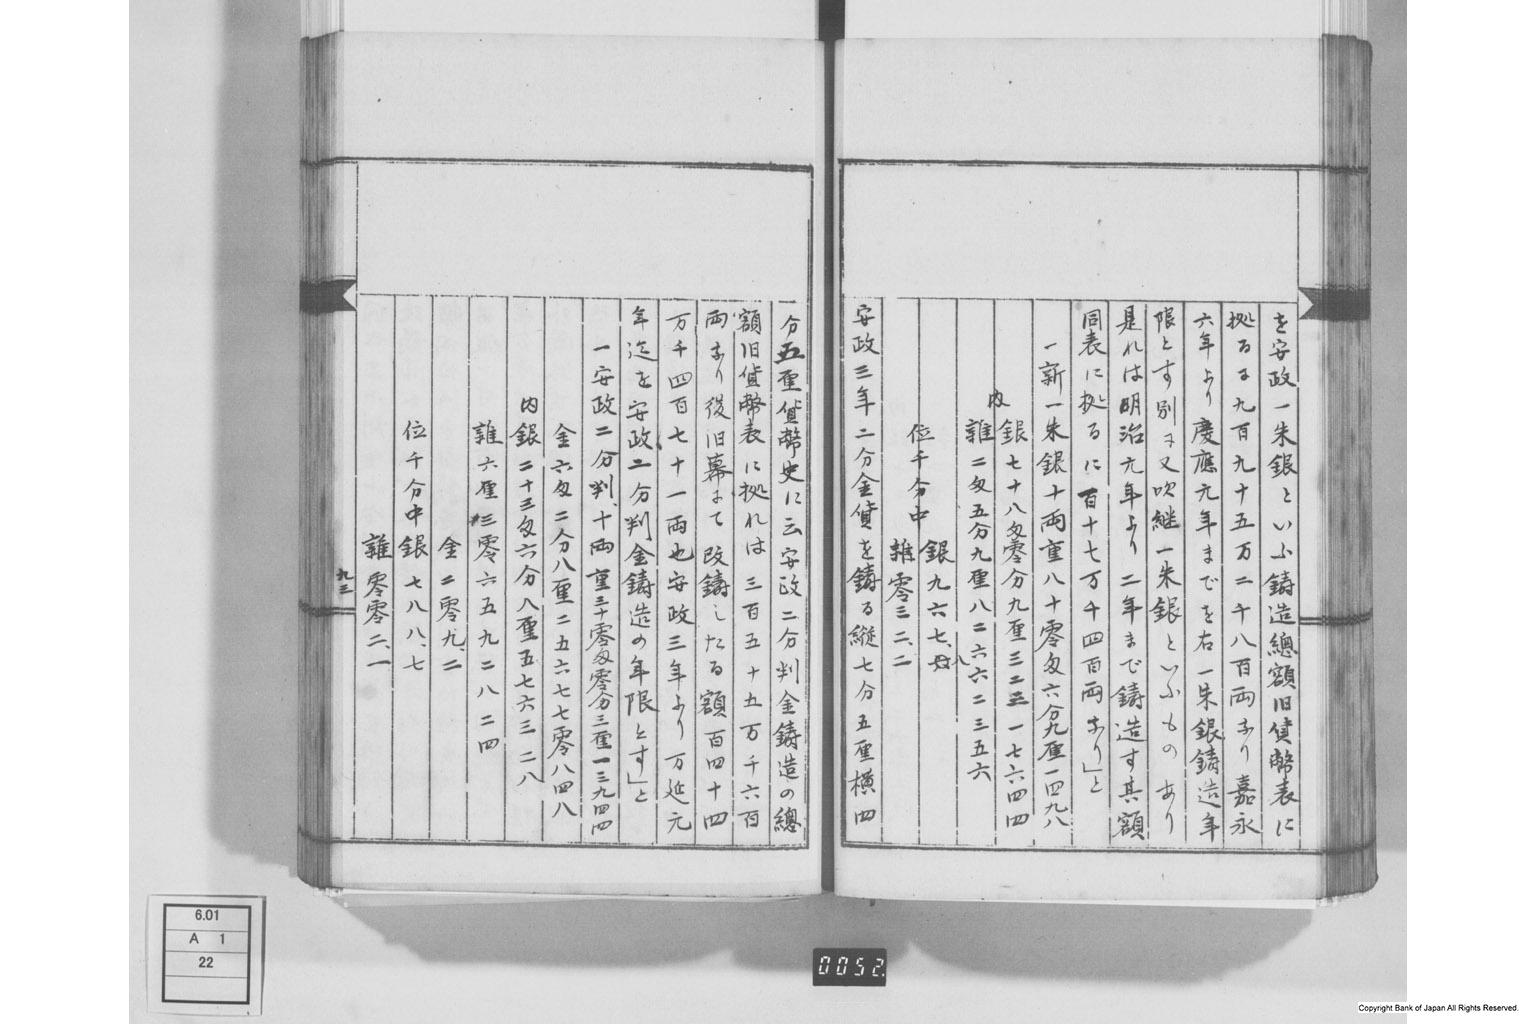 を安政一朱銀といふ鋳造總額旧貨幣表に
拠るに九百九十五万二千八百両なり嘉永
六年より慶應元年までを右一朱銀鋳造年
限とす別に又吹継一朱銀といふものあり
是れは明治元年より二年まで鋳造す其額
同表に拠るに百十七万千四百両なり」と
一新一朱銀十両重八十零匁六分九厘一四九八
内
銀七十八匁零分九厘三二三一七六四四
雑二匁五分九厘八二六六二三五六
位千分中
銀九六七、八
雑零三二、二
安政三年二分金貨を鋳る縦七分五厘横四
分五厘貨幣史に云安政二分判金鋳造の總
額旧貨幣表に拠れは三百五十五万千六百
両なり後旧幕にて改鋳したる額百四十四
万千四百七十一両也安政三年より万延元
年迄を安政二分判金鋳造の年限とす」と
一安政二分判、十両重三十零匁零分三厘一三九四四
金六匁二分八厘二五六七七零八四八
内銀二十三匁六分八厘五七六三二八
雑六厘三零六五九二八二四
金二零九、二
位千分中銀七八八、七
雑零零二、一
九三
6.01
A 1
22
0052
Copyright Bank of Japan All Rights Reserved.